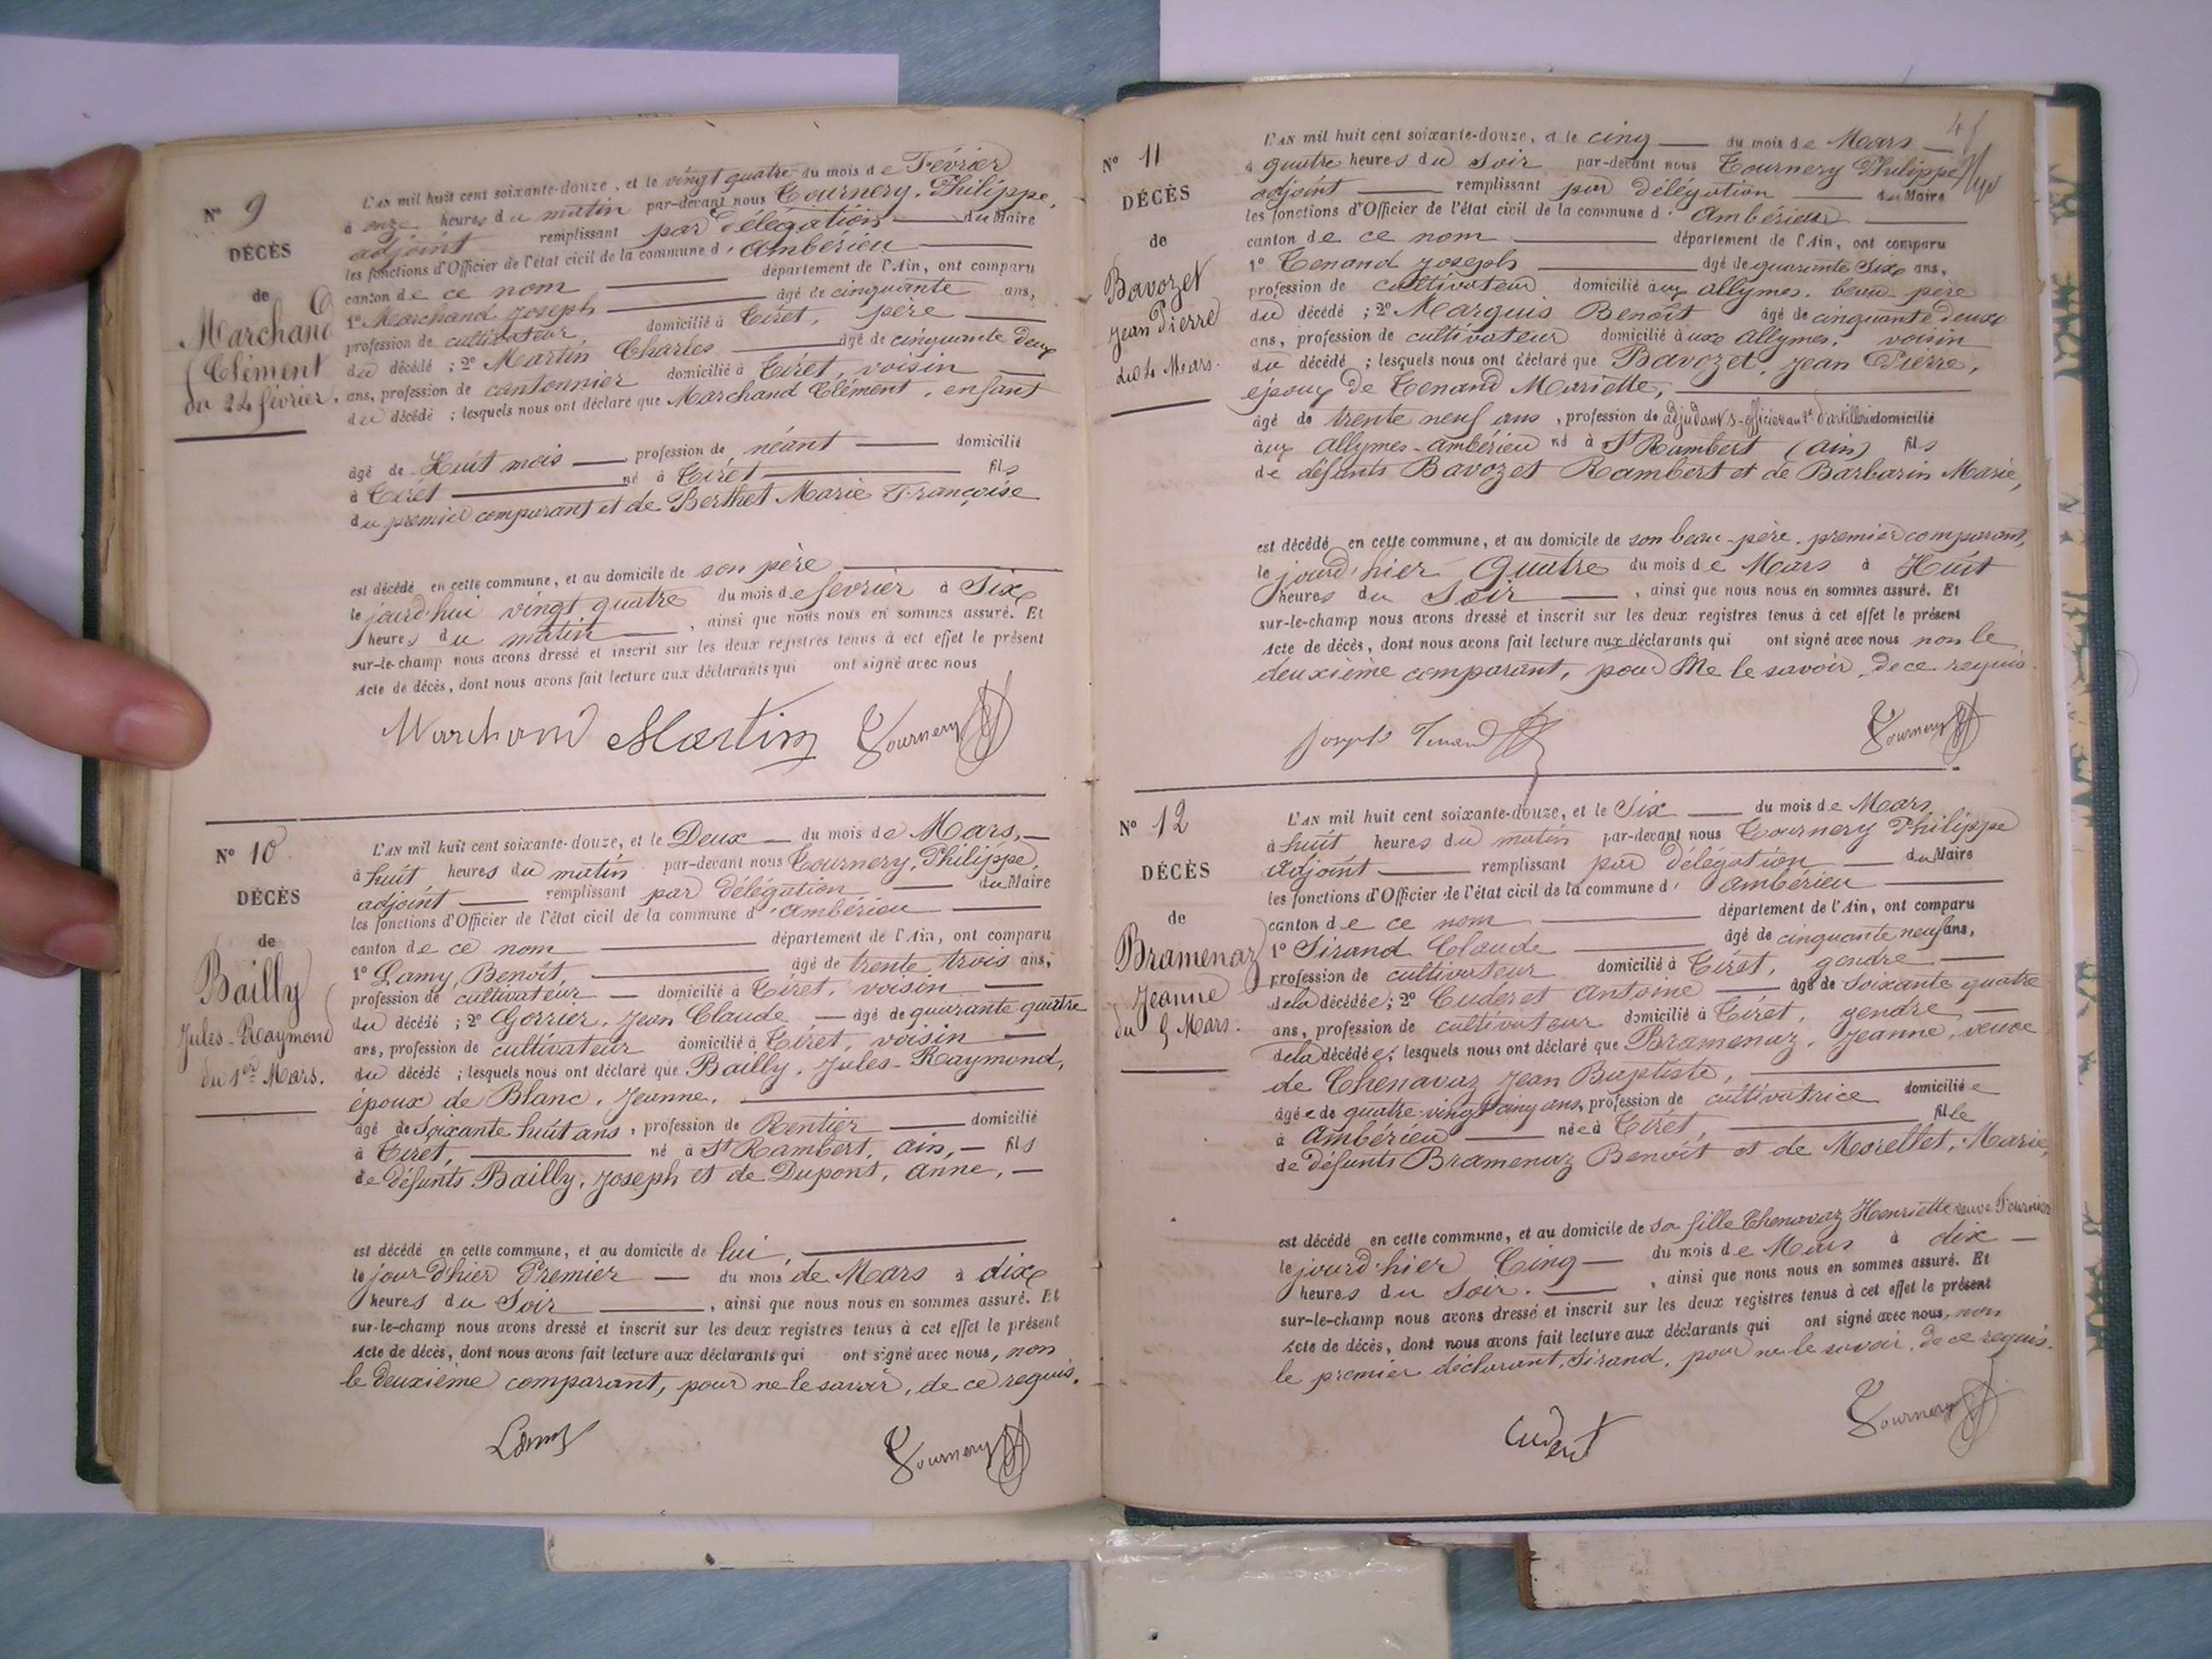 N° 9
DÉCÈS
de
Marchand
Clément
du 24 février.
L'AN mil huit cent soixante-douze, et le vingt quatre du mois de Février
à onze heures du matin par-devant nous Tournery, Philippe,
adjoint remplissant par délégation du Maire
les fonctions d'Officier de l'état civil de la commune d'Ambérieu
canton de ce nom département de l'Ain, ont comparu
1° Marchand Joseph âgé de cinquante ans,
profession de cultivateur, domicilié à Tiret, père
du décédé ; 2° Martin Charles âgé de cinquante deux
ans, profession de cantonnier domicilié à Tiret, voisin
du décédé ; lesquels nous ont déclaré que Marchand Clément, enfant
âgé de Huit mois, profession de néant domicilié
à Tiret né à Tiret fils
du premier comparant et de Berthet Marie Françoise
est décédé en cette commune, et au domicile de son père
le jourd'hui vingt quatre du mois de fevrier à Six
heures du matin, ainsi que nous nous en sommes assuré. Et
sur-le-champ nous avons dressé et inscrit sur les deux registres tenus à cet effet le présent
Acte de décès, dont nous avons fait lecture aux déclarants qui ont signé avec nous
Marchand Martin Tournery
N° 10
DÉCÈS
de
Bailly
Jules-Raymond
du 1er Mars.
L'AN mil huit cent soixante-douze, et le Deux du mois de Mars,
à huit heures du matin par-devant nous Tournery, Philippe,
adjoint remplissant par délégation du Maire
les fonctions d'Officier de l'état civil de la commune d'Ambérieu
canton de ce nom département de l'Ain, ont comparu
1° Lamy, Benoît, âgé de trente trois ans,
profession de cultivateur domicilié à Tiret, voisin
du décédé ; 2° Gorrier, Jean Claude, âgé de quarante quatre
ans, profession de cultivateur domicilié à Tiret, voisin
du décédé ; lesquels nous ont déclaré que Bailly, Jules-Raymond,
époux de Blanc, Jeanne,
âgé de Soixante huit ans, profession de Rentier domicilié
à Tiret, né à St Rambert, Ain, fils
de défunts Bailly, Joseph et de Dupont, Anne,
est décédé en cette commune, et au domicile de lui,
le jour d'hier Premier du mois de Mars à dix
heures du Soir, ainsi que nous nous en sommes assuré. Et
sur-le-champ nous avons dressé et inscrit sur les deux registres tenus à cet effet le présent
Acte de décès, dont nous avons fait lecture aux déclarants qui ont signé avec nous, non
le deuxième comparant, pour ne le savoir, de ce requis.
Lamy Tournery
N° 11
DÉCÈS
de
Bavozet
Jean Pierre
du 4 Mars.
L'AN mil huit cent soixante-douze, et le cinq du mois de Mars
à quatre heures du Soir par-devant nous Tournery Philippe
adjoint remplissant par délégation du Maire
les fonctions d'Officier de l'état civil de la commune d'Ambérieu
canton de ce nom département de l'Ain, ont comparu
1° Tenand Joseph âgé de quarante Six ans,
profession de cultivateur domicilié aux Allymes, beau-père
du décédé ; 2° Marquis Benoît âgé de cinquante deux
ans, profession de cultivateur domicilié aux Allymes, voisin
du décédé ; lesquels nous ont déclaré que Bavozet, Jean Pierre,
époux de Tenand Mariette,
âgé de trente neuf ans, profession de adjudant s-officier au 2e d'artillerie domicilié
aux Allymes-Ambérieu né à St Rambert (Ain) fils
de défunts Bavozet Rambert et de Barbarin Marie,
est décédé en cette commune, et au domicile de son beau-père, premier comparant,
le jourd'hier Quatre du mois de Mars à Huit
heures du Soir, ainsi que nous nous en sommes assuré. Et
sur-le-champ nous avons dressé et inscrit sur les deux registres tenus à cet effet le présent
Acte de décès, dont nous avons fait lecture aux déclarants qui ont signé avec nous non le
deuxième comparant, pour Ne le savoir, de ce requis.
Joseph Tenand Tournery
N° 12
DÉCÈS
de
Bramenaz
Jeanne
du 5 Mars.
L'AN mil huit cent soixante-douze, et le Six du mois de Mars
à huit heures du matin par-devant nous Tournery Philippe
Adjoint remplissant par délégation du Maire
les fonctions d'Officier de l'état civil de la commune d'Ambérieu
canton de ce nom département de l'Ain, ont comparu
1° Sirand Claude âgé de cinquante neuf ans,
profession de cultivateur domicilié à Tiret, gendre
de la décédée ; 2° Cuderet Antoine âgé de Soixante quatre
ans, profession de cultivateur domicilié à Tiret, gendre
de la décédée ; lesquels nous ont déclaré que Bramenaz, Jeanne, veuve
de Chenavaz Jean Baptiste,
âgée de quatre-vingt cinq ans, profession de cultivatrice domiciliée
à Ambérieu née à Tiret, fille
de défunts Bramenaz Benoît et de Morellet, Marie,
est décédé en cette commune, et au domicile de sa fille Chenavaz Henriette veuve Fournier
le jourd'hier Cinq du mois de Mars à dix
heures du Soir, ainsi que nous nous en sommes assuré. Et
sur-le-champ nous avons dressé et inscrit sur les deux registres tenus à cet effet le présent
Acte de décès, dont nous avons fait lecture aux déclarants qui ont signé avec nous, non
le premier déclarant, Sirand, pour ne le savoir, de ce requis.
Tournery